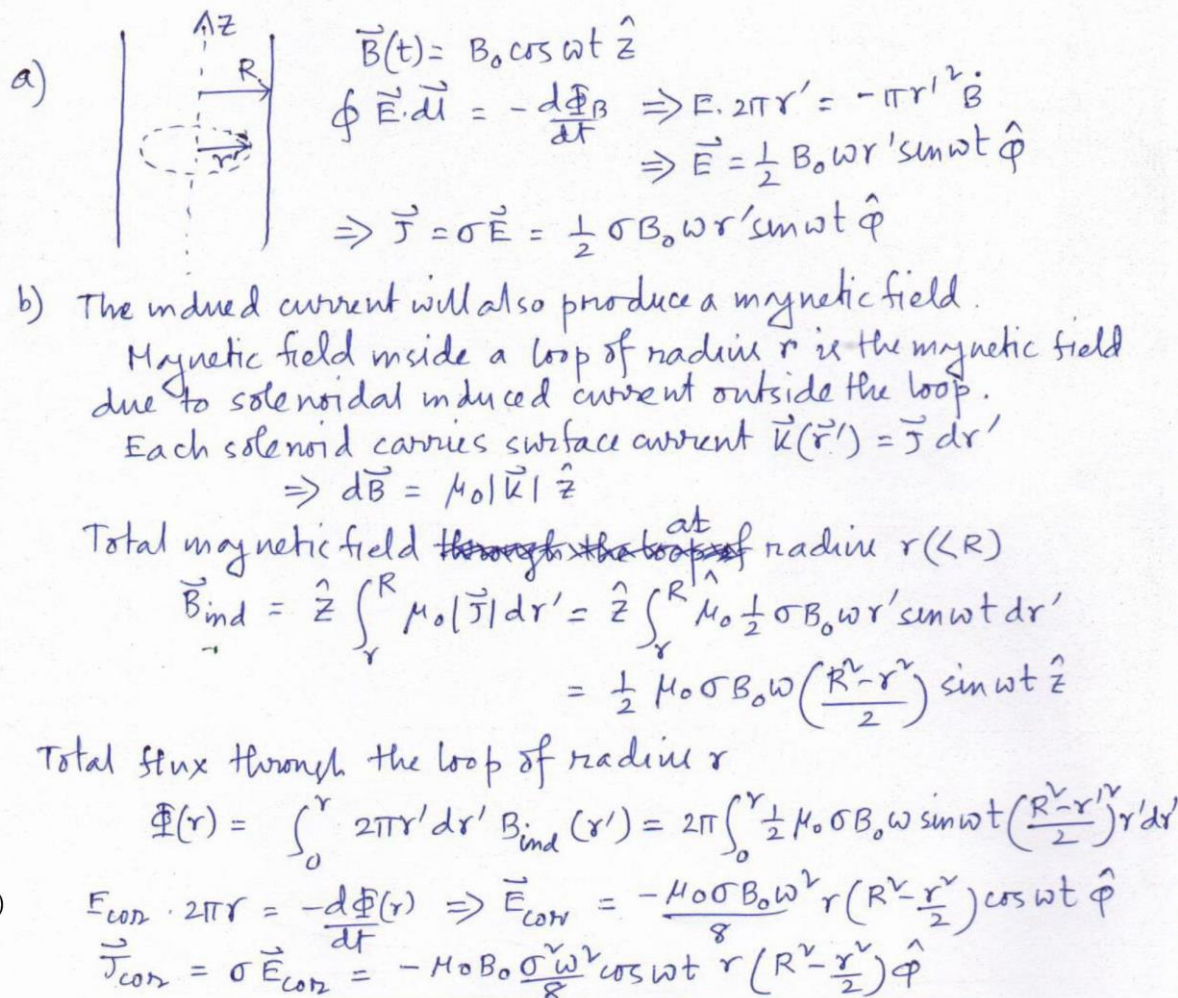 a) z R r' B⃗(t) = B₀ cos ωt ẑ
∮ E⃗.dl⃗ = -dΦ_B/dt ⇒ E. 2πr' = -πr'² Ḃ
⇒ E⃗ = 1/2 B₀ωr' sin ωt φ̂
⇒ J⃗ = σE⃗ = 1/2 σB₀ωr' sin ωt φ̂
b) The indued current will also produce a magnetic field.
Magnetic field inside a loop of radius r is the magnetic field
due to solenoidal induced current outside the loop.
Each solenoid carries surface current K⃗(r⃗') = J⃗ dr'
⇒ dB⃗ = μ₀|K⃗| ẑ
Total magnetic field at radius r(<R)
B⃗_ind = ẑ ∫_r^R μ₀|J⃗|dr' = ẑ ∫_r^R μ₀ 1/2 σB₀ωr' sin ωt dr'
= 1/2 μ₀σB₀ω((R²-r²)/2) sin ωt ẑ
Total flux through the loop of radius r
Φ(r) = ∫₀^r 2πr'dr' B_ind(r') = 2π∫₀^r 1/2 μ₀σB₀ω sin ωt((R²-r'²)/2)r'dr'
) E_corr . 2πr = -dΦ(r)/dt ⇒ E⃗_corr = -μ₀σB₀ω²/8 r(R²-r²/2) cos ωt φ̂
J⃗_corr = σE⃗_corr = -μ₀B₀ σ²ω²/8 cos ωt r(R²-r²/2)φ̂